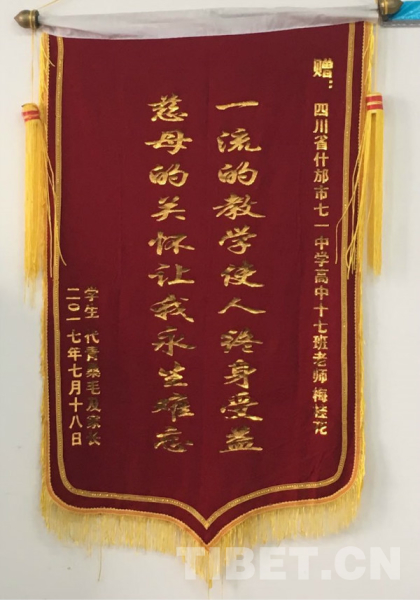 赠：四川省什邡市七一中学高中十七班老师梅
一流的教学使人终身受益
慈母的关怀让我永生难忘
学生 代青桑毛及家长
二〇一七年七月十八日
TIBET.CN